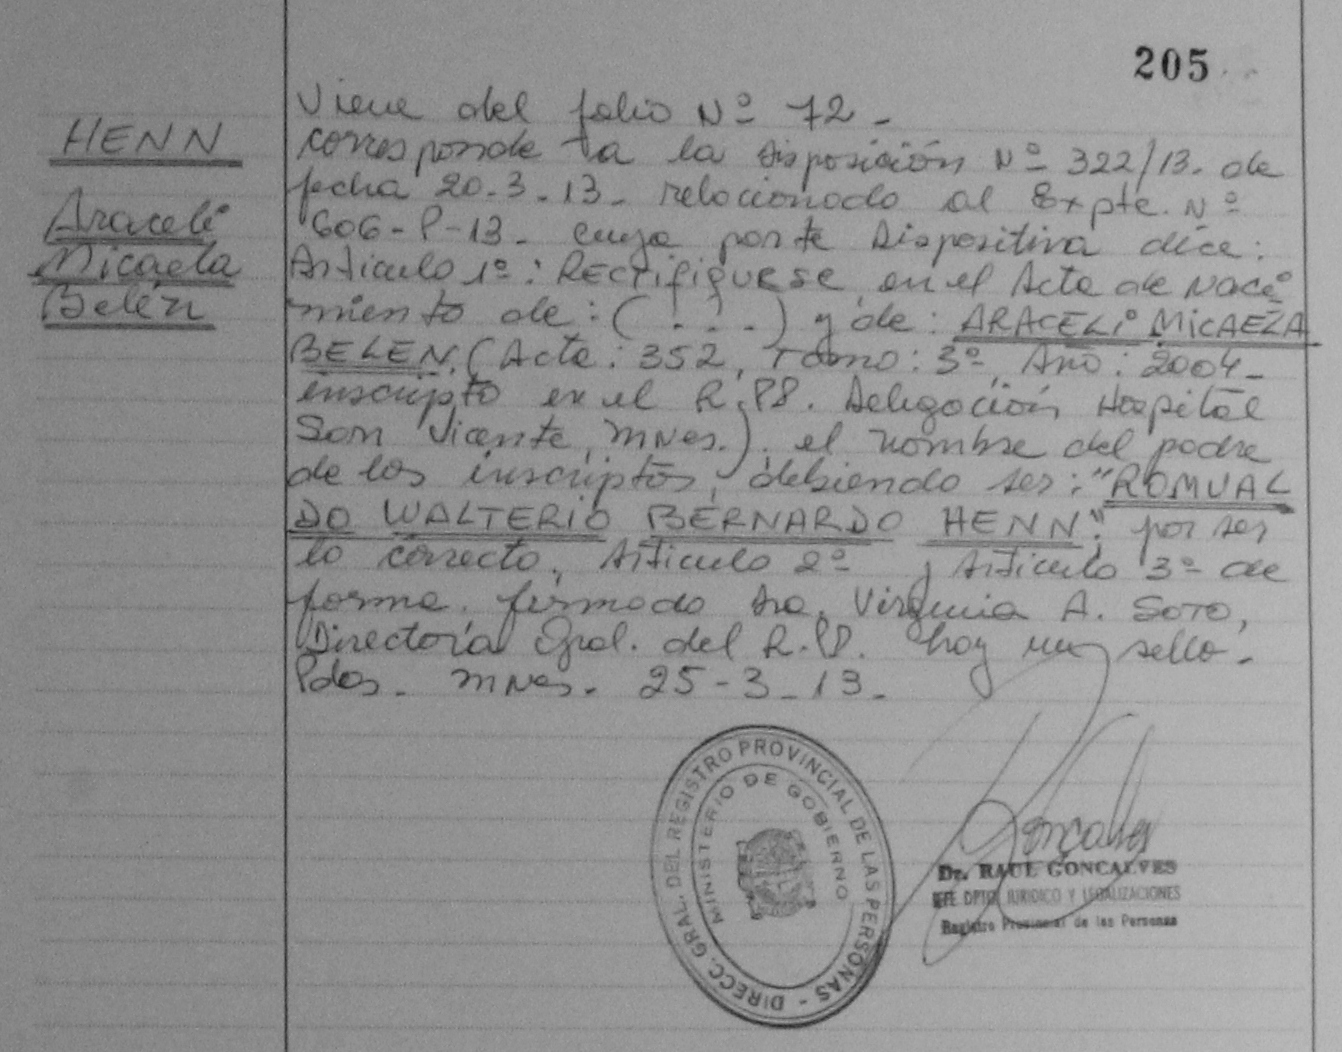 205
HENN
Araceli
Micaela
Belén
Viene del folio Nº 72 -
corresponde a la Disposición Nº 322/13. de
fecha 20-3-13- relacionado al Expte. Nº
606-P-13- cuya parte Dispositiva dice:
Articulo 1º: RECTIFIQUESE, en el Acta de Naci
miento de: (...) y de: ARACELI MICAELA
BELEN. (Acta: 352, Tomo: 3º, Año: 2004-
inscripto en el R.PP. Delegación Hospital
San Vicente, MNes.). el nombre del padre
de los inscriptos, debiendo ser: "ROMUAL
DO WALTERIO BERNARDO HENN", por ser
lo correcto, Articulo 2º y Articulo 3º de
forma. firmado Dra. Virginia A. SOTO,
Directora Gral. del R.PP. hay un sello-
Pdas- MNes- 25-3-13-
DIRECC. GRAL. DEL REGISTRO PROVINCIAL DE LAS PERSONAS -
MINISTERIO DE GOBIERNO
Goncalves
Dr. RAUL GONCALVES
JEFE DPTO. JURIDICO Y LEGALIZACIONES
Registro Provincial de las Personas